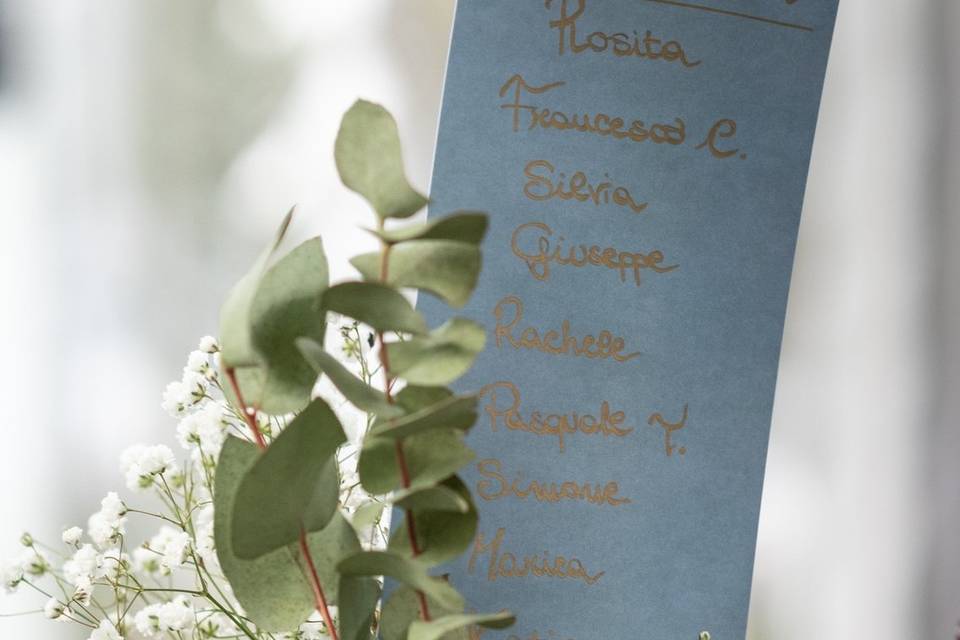 Rosita
Francesca C.
Silvia
Giuseppe
Rachele
Pasquale T.
Simone
Marica